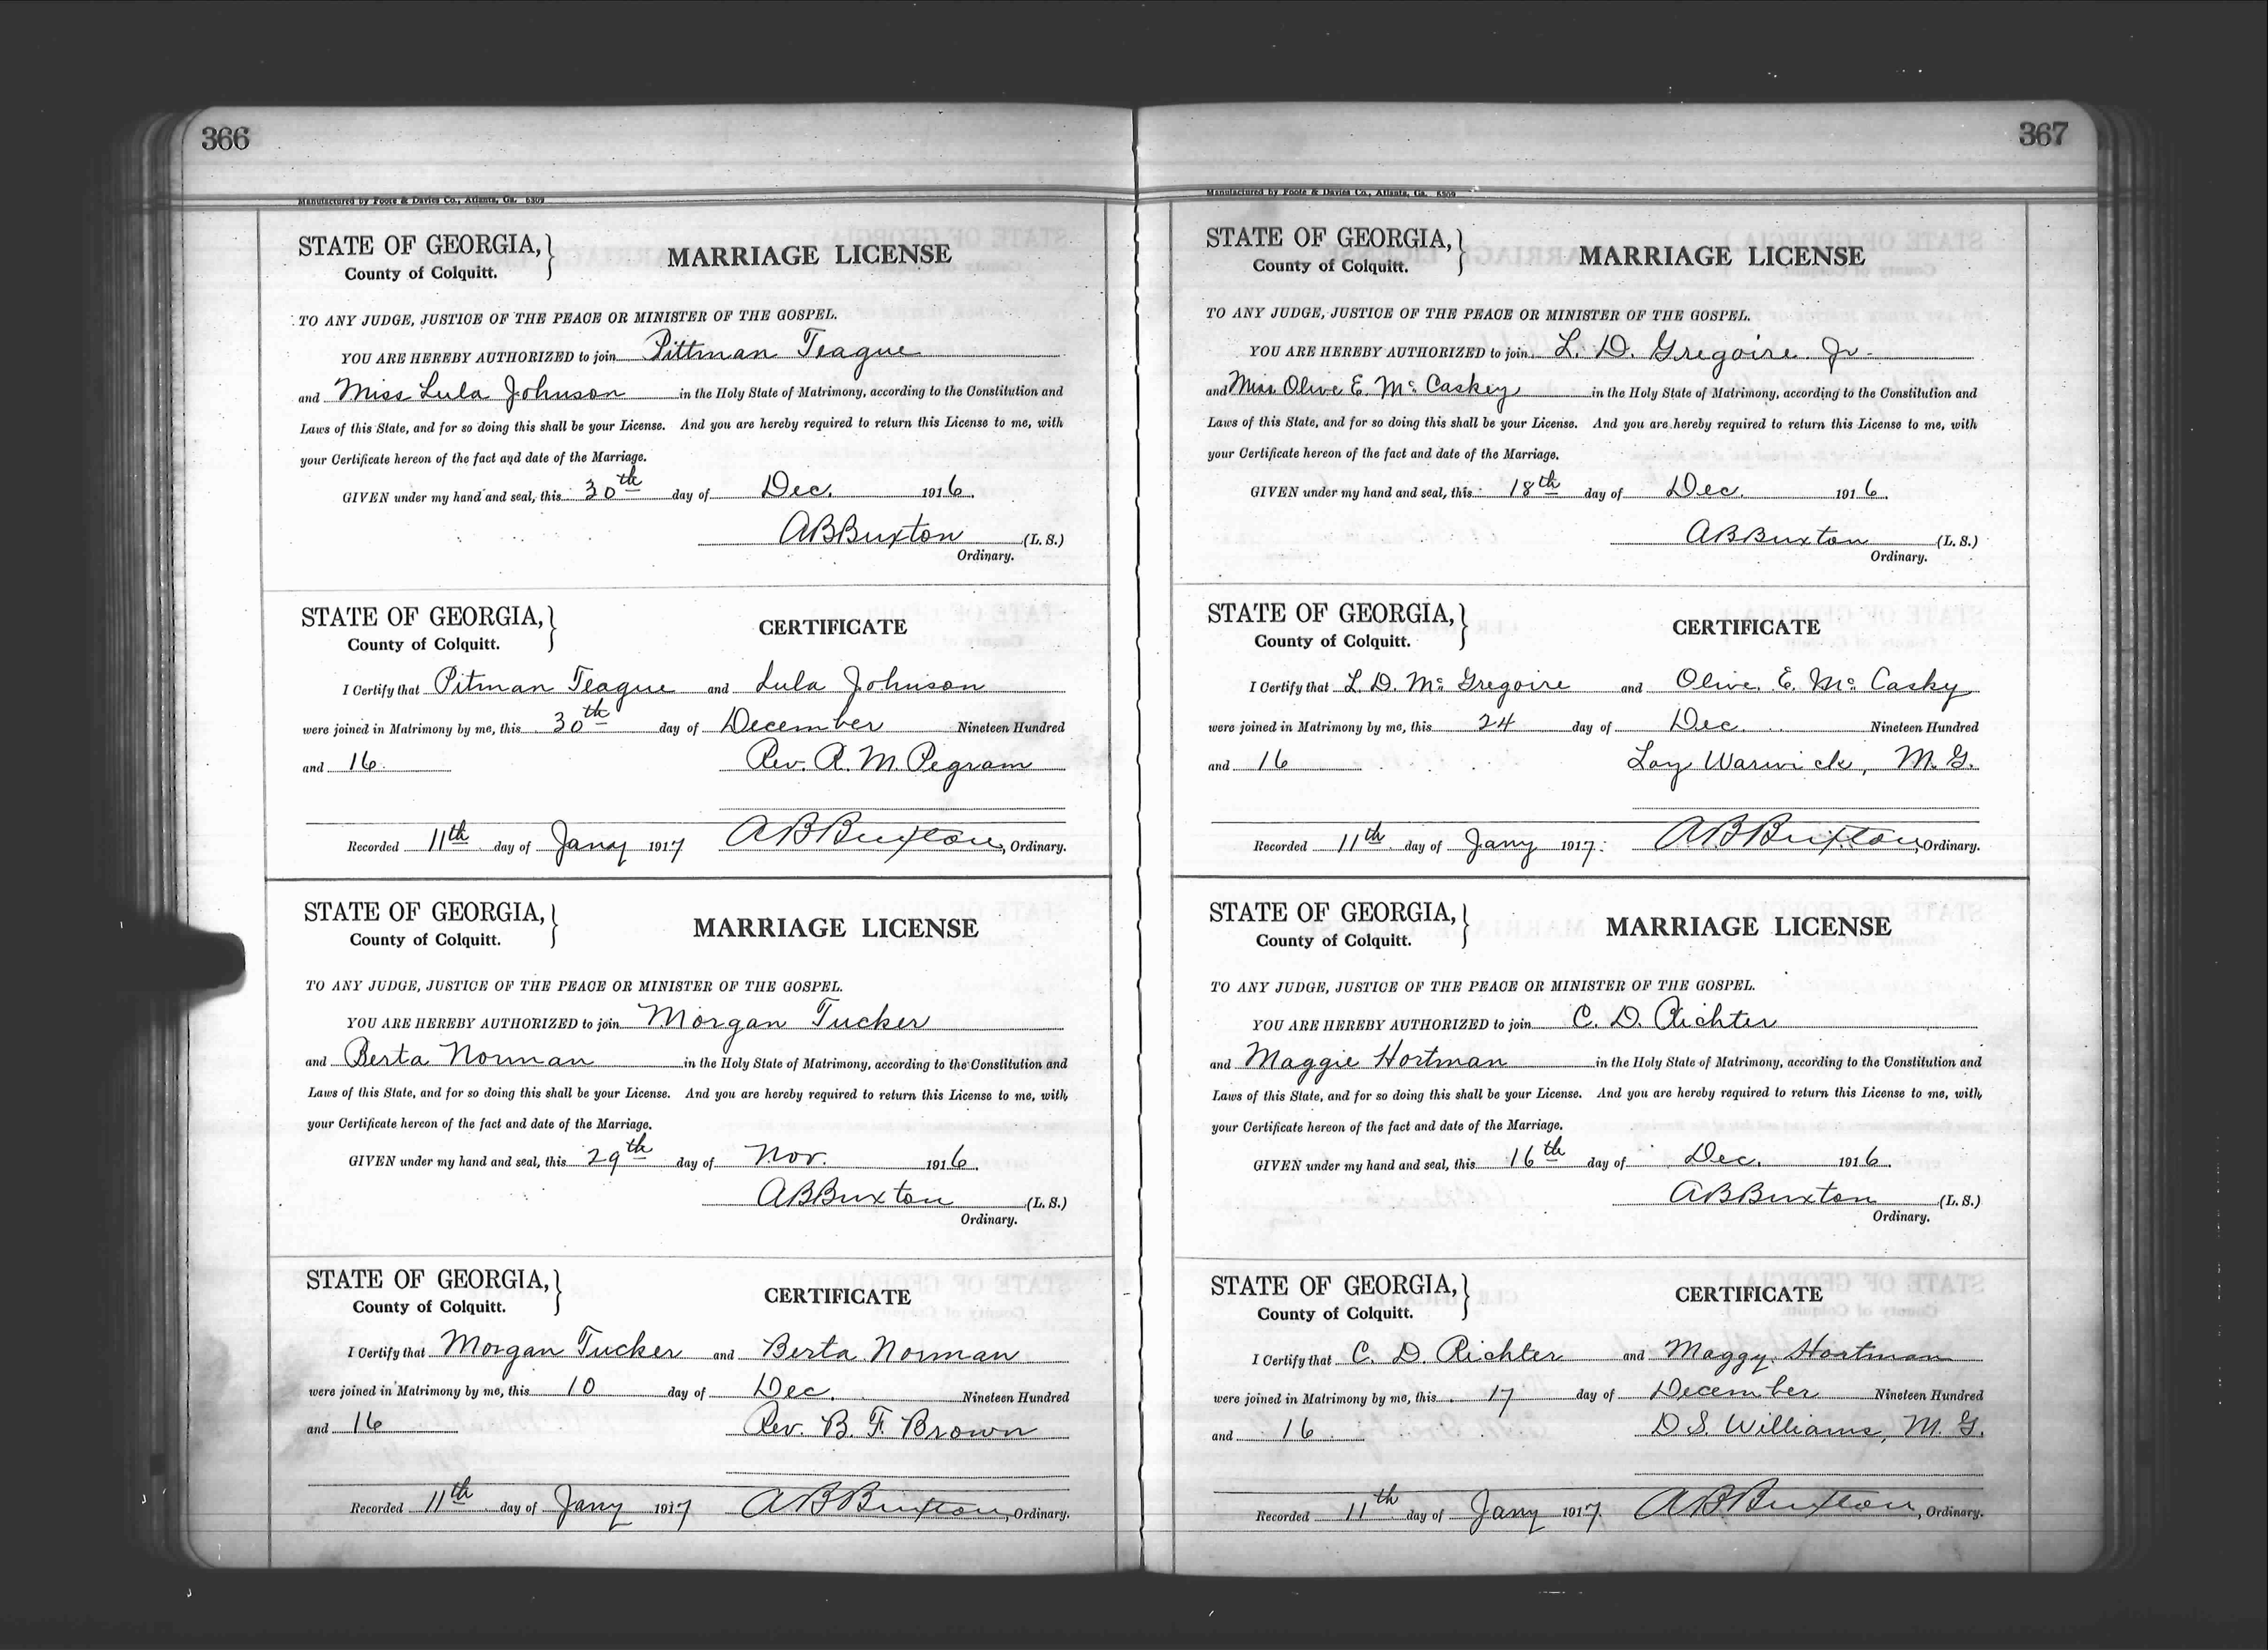 366
Manufactured by Foote & Davies Co., Atlanta, Ga. 6309
STATE OF GEORGIA,
County of Colquitt.
MARRIAGE LICENSE
TO ANY JUDGE, JUSTICE OF THE PEACE OR MINISTER OF THE GOSPEL.
YOU ARE HEREBY AUTHORIZED to join Pittman Teague
and Miss Lula Johnson in the Holy State of Matrimony, according to the Constitution and
Laws of this State, and for so doing this shall be your License. And you are hereby required to return this License to me, with
your Certificate hereon of the fact and date of the Marriage.
GIVEN under my hand and seal, this 30th day of Dec. 1916.
A B Buxton (L. S.)
Ordinary.
STATE OF GEORGIA,
County of Colquitt.
CERTIFICATE
I Certify that Pitman Teague and Lula Johnson
were joined in Matrimony by me, this 30th day of December Nineteen Hundred
and 16. Rev. R. M. Pegram
Recorded 11th day of Jany 1917 A B Buxton, Ordinary.
STATE OF GEORGIA,
County of Colquitt.
MARRIAGE LICENSE
TO ANY JUDGE, JUSTICE OF THE PEACE OR MINISTER OF THE GOSPEL.
YOU ARE HEREBY AUTHORIZED to join Morgan Tucker
and Berta Norman in the Holy State of Matrimony, according to the Constitution and
Laws of this State, and for so doing this shall be your License. And you are hereby required to return this License to me, with
your Certificate hereon of the fact and date of the Marriage.
GIVEN under my hand and seal, this 29th day of Nov. 1916.
A B Buxton (L. S.)
Ordinary.
STATE OF GEORGIA,
County of Colquitt.
CERTIFICATE
I Certify that Morgan Tucker and Berta Norman
were joined in Matrimony by me, this 10 day of Dec. Nineteen Hundred
and 16 Rev. B. F. Brown
Recorded 11th day of Jany 1917 A B Buxton, Ordinary.
367
Manufactured by Foote & Davies Co., Atlanta, Ga. 6309
STATE OF GEORGIA,
County of Colquitt.
MARRIAGE LICENSE
TO ANY JUDGE, JUSTICE OF THE PEACE OR MINISTER OF THE GOSPEL.
YOU ARE HEREBY AUTHORIZED to join L. D. Gregoire Jr.
and Miss Olive E. Mc Caskey in the Holy State of Matrimony, according to the Constitution and
Laws of this State, and for so doing this shall be your License. And you are hereby required to return this License to me, with
your Certificate hereon of the fact and date of the Marriage.
GIVEN under my hand and seal, this 18th day of Dec. 1916.
A B Buxton (L. S.)
Ordinary.
STATE OF GEORGIA,
County of Colquitt.
CERTIFICATE
I Certify that L. D. Mc Gregoire and Olive E. Mc Casky
were joined in Matrimony by me, this 24 day of Dec. Nineteen Hundred
and 16 Loy Warwick, M. G.
Recorded 11th day of Jany 1917. A B Buxton, Ordinary.
STATE OF GEORGIA,
County of Colquitt.
MARRIAGE LICENSE
TO ANY JUDGE, JUSTICE OF THE PEACE OR MINISTER OF THE GOSPEL.
YOU ARE HEREBY AUTHORIZED to join C. D. Richter
and Maggie Hortman in the Holy State of Matrimony, according to the Constitution and
Laws of this State, and for so doing this shall be your License. And you are hereby required to return this License to me, with
your Certificate hereon of the fact and date of the Marriage.
GIVEN under my hand and seal, this 16th day of Dec. 1916.
A B Buxton (L. S.)
Ordinary.
STATE OF GEORGIA,
County of Colquitt.
CERTIFICATE
I Certify that C. D. Richter and Maggy Hortman
were joined in Matrimony by me, this 17 day of December Nineteen Hundred
and 16 D S. Williams, M. G.
Recorded 11th day of Jany 1917. A B Buxton, Ordinary.